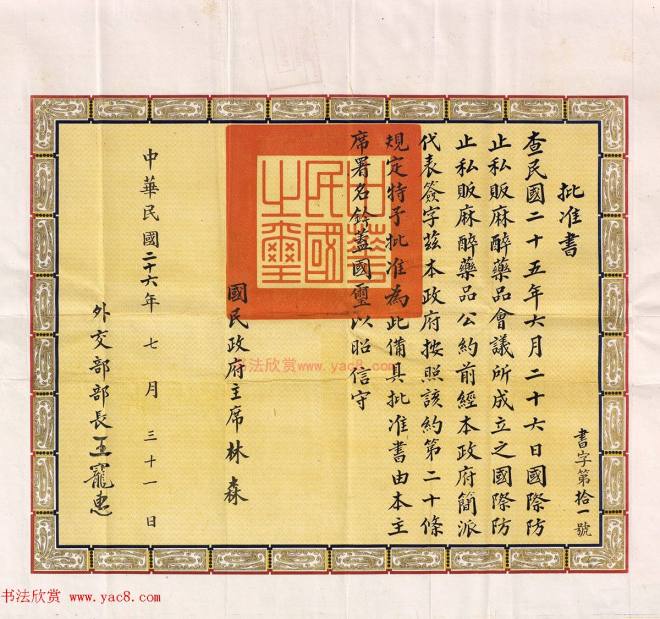 批准書
書字第拾一號
查民國二十五年六月二十六日國際防
止私販麻醉藥品會議所成立之國際防
止私販麻醉藥品公約前經本政府簡派
代表簽字茲本政府按照該約第二十條
規定特予批准為此備具批准書由本主
席署名鈐蓋國璽以昭信守
中華民國之璽
國民政府主席林森
中華民國二十六年七月三十一日
外交部部長王寵惠
书法欣赏www.yac8.com
书法欣赏 www.yac8.com